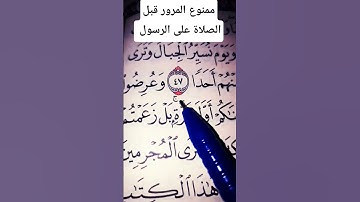 ممنوع المرور قبل
الصلاة على الرسول
وَيَوْمَ نُسَيِّرُ ٱلْجِبَالَ وَتَرَى
مِنْهُمْ أَحَدًا ٤٧ وَعُرِضُوا
بَلْ زَعَمْتُمْ
ٱلْمُجْرِمِينَ
هَٰذَا ٱلْكِتَٰبِ